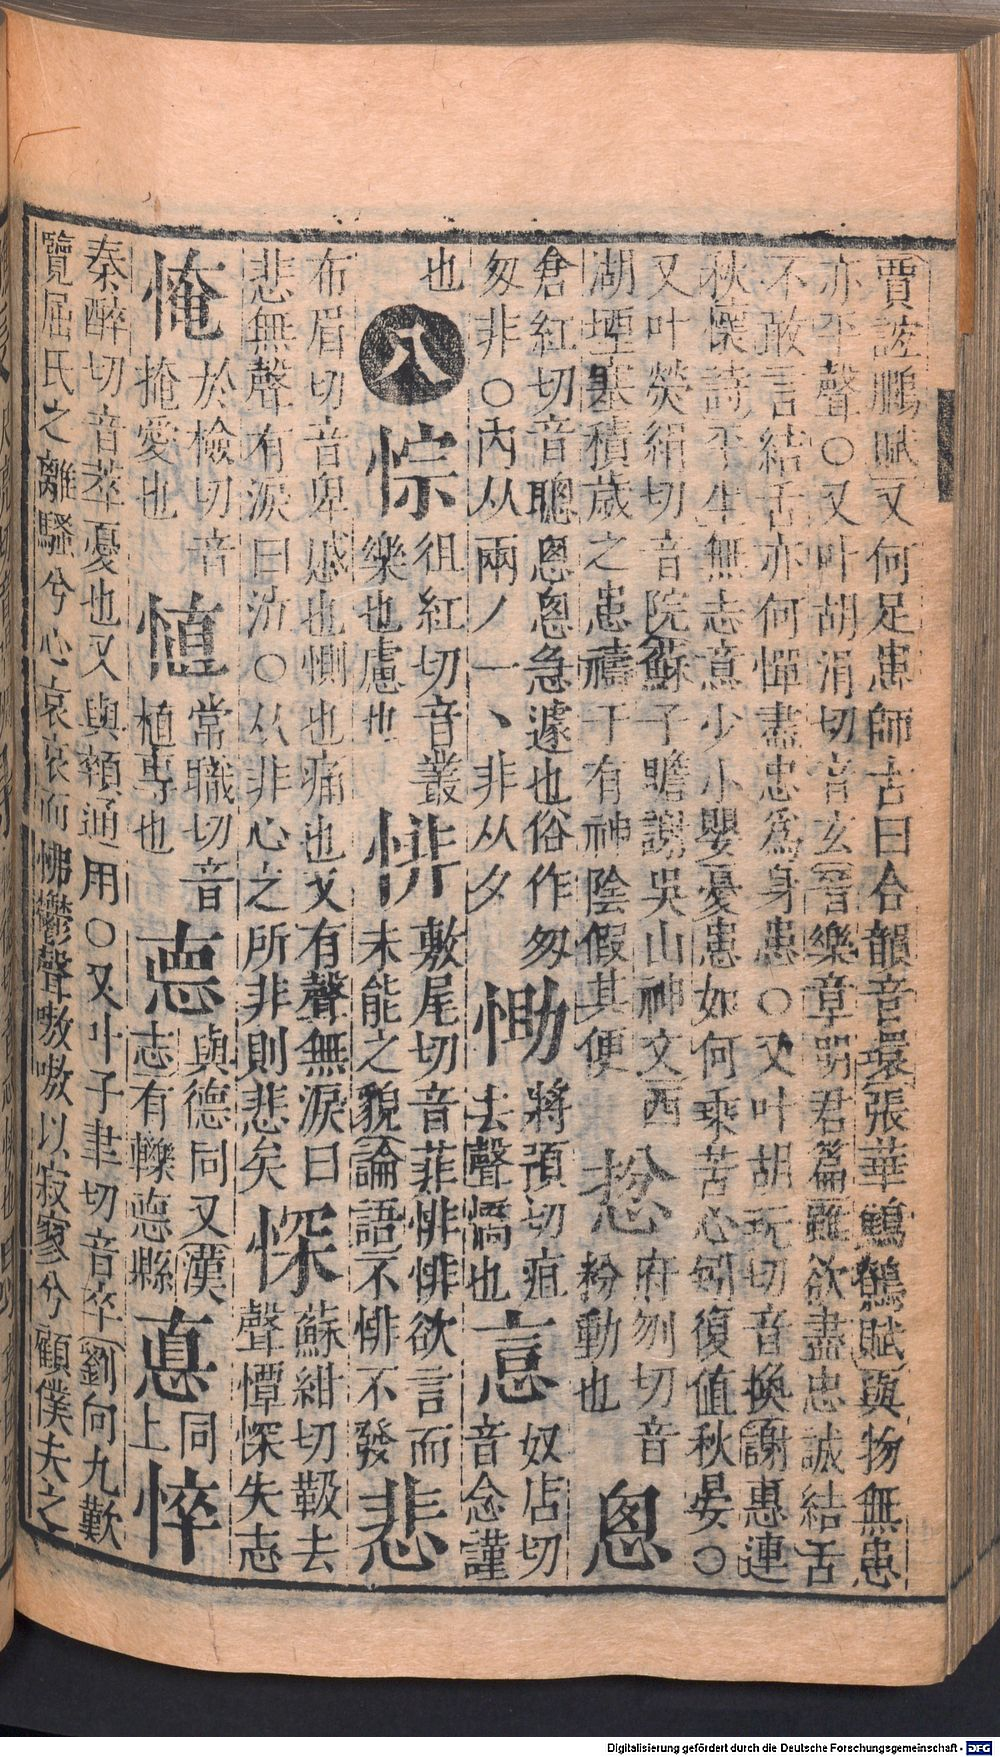 賈誼鵬賦又何足患師古曰合韻音環張華鷦鷯賦與物無患
亦平聲○又叶胡涓切音玄晉樂章明君篇雖欲盡忠誠結舌
不敢言結舌亦何憚盡忠爲身患○又叶胡玩切音換謝惠連
秋懷詩平生無志意少小嬰憂患如何乘苦心矧復值秋晏○
又叶熒絹切音院蘇子瞻謝吳山神文西
湖堙塞積歲之患禱于有神陰假其便
㤋 府刎切音
粉動也
悤
倉紅切音聰悤悤急遽也俗作匆
匆非○內从兩ノ一丶非从夕
㔢 將預切疽
去聲憍也
㤐 奴店切
音念謹
也
八
悰 徂紅切音叢
樂也慮也
悱 敷尾切音菲悱悱欲言而
未能之貌論語不悱不發
悲
布眉切音卑慼也惻也痛也又有聲無淚曰
悲無聲有淚曰泣○从非心之所非則悲矣
㥆 蘇紺切鞁去
聲憛㥆失志
㤿 於檢切音
掩愛也
㥀 常職切音
植専也
惪 與德同又漢
志有轢惪縣
悳 同
上
悴
秦醉切音萃憂也又與顇通用○又叶子聿切音卒劉向九歎
覽屈氏之離騷兮心哀哀而怫鬱聲嗷嗷以寂寥兮顧僕夫之
Digitalisierung gefördert durch die Deutsche Forschungsgemeinschaft - DFG